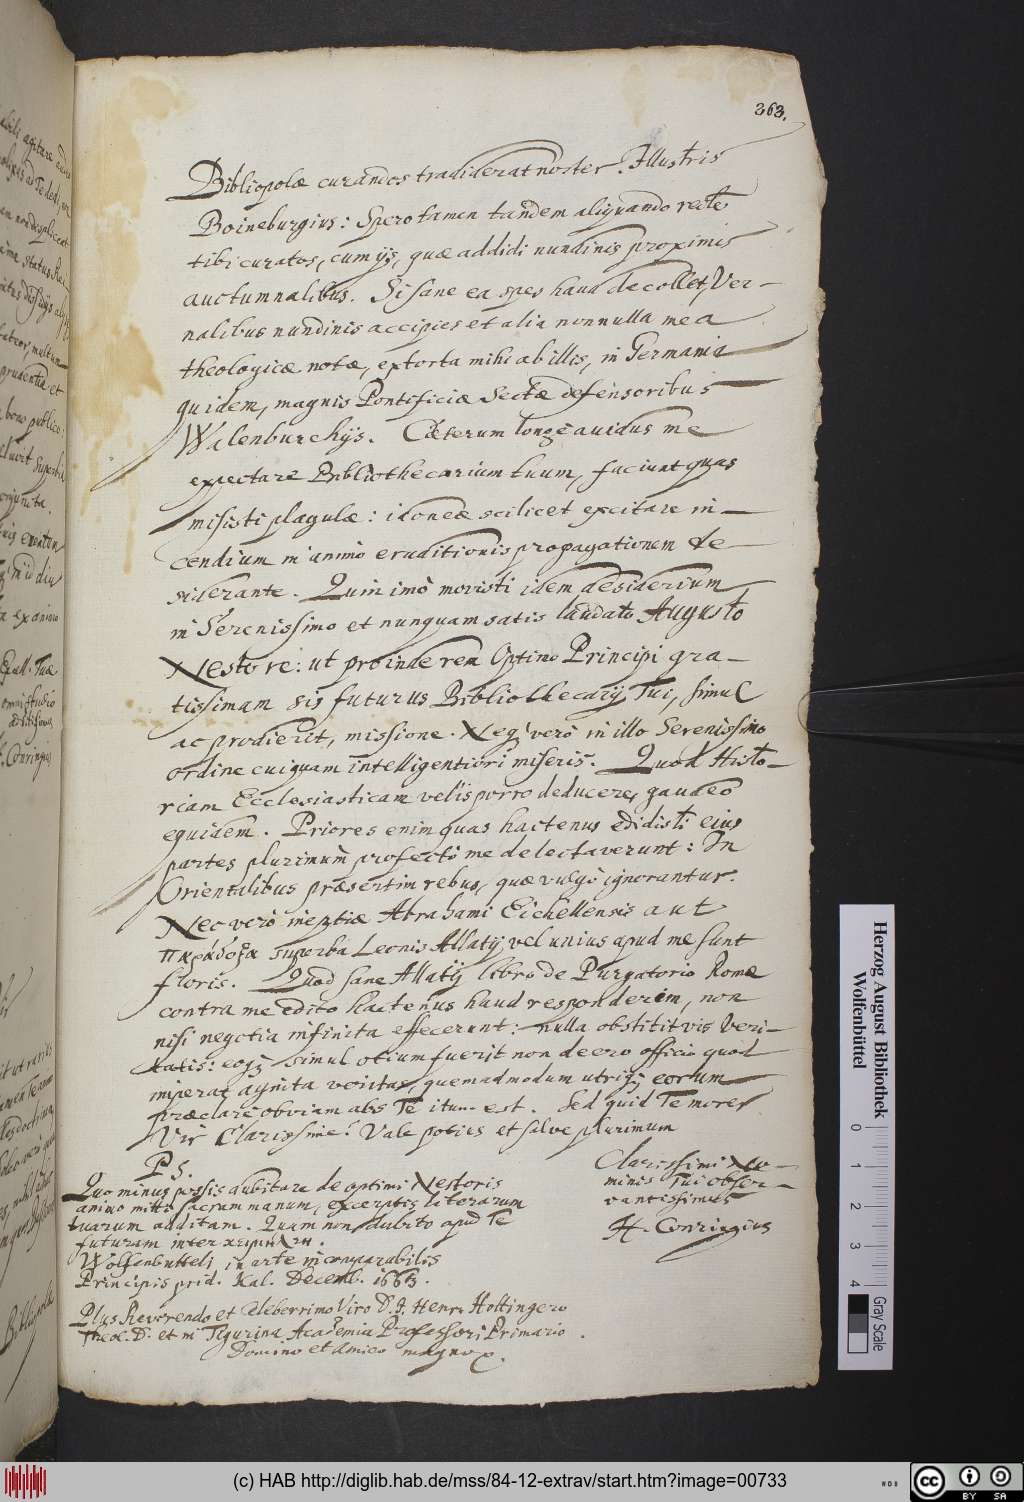 363.
Bibliopolæ curandos tradiderat noster Illustris
Boineburgius: Spero tamen tandem aliquando recte
tibi curatos, cum ijs, quæ addidi nundinis proximis
auctumnalibus. Si sane ea spes haud decollet, Ver-
nalibus nundinis accipies et alia nonnulla mea
theologicæ notæ, extorta mihi ab illis, in Germania
quidem, magnis Pontificiæ Sectæ defensoribus
Walenburchijs. Cæterum longè avidus me
expectare Bibliothecarium tuum, faciunt quas
misisti plagulæ: idoneæ scilicet excitare in-
cendium in animo eruditionis propagationem de-
siderante. Quin imò movisti idem desiderium
in Serenissimo et nunquam satis laudato Augusto
Nestore: ut proinde rem Optimo Principi gra-
tissimam sis futurus Bibliothecarij Tui, simul
ac prodierit, missione. Neq; verò in illo Serenissimo
ordine cuiquam intelligentiori miseris. Quod Histo-
riam Ecclesiasticam velis porro deducere, gaudeo
equidem. Priores enim quas hactenus edidisti eius
partes plurimùm profectò me delectaverunt: In
Orientalibus præsertim rebus, quæ vulgò ignorantur.
Nec verò ineptiæ Abrahami Eichellensis aut
παράδοξα superba Leonis Allatij vel unius apud me sunt
floris. Quod sane Allatij libro de Purgatorio Romæ
contra me edito hactenus haud responderim, non
nisi negotia infinita effecerunt: nulla obstitit vis Veri-
tatis: eoq; simul otium fuerit non deero officio quod
imperat agnita veritas, quemadmodum utriq; eorum
præclarè obviam abs Te itum est. Sed quid Te moror
Vir Clarissime! Vale poties et salve plurimum
Clarissimi No-
minis Tui obser-
vantissimus
H. Conringius
PS.
Quo minus possis dubitare de optimi Nestoris
animo mitto sacram manum, excerptis literarum
tuarum additam. Quam non dubito apud Te
futuram inter κειμήλια.
Wolfenbutteli, in arte incomparabilis
Principis prid. Kal. Decemb. 1663.
Plus Reverendo et Celeberrimo Viro D. J. Henr. Hottingero
Theol. D. et in Tigurina Academia Professori Primario.
Domino et Amico magno
Herzog August Bibliothek
Wolfenbüttel
0 1 2 3 4
Gray Scale
(c) HAB http://diglib.hab.de/mss/84-12-extrav/start.htm?image=00733
cc BY SA